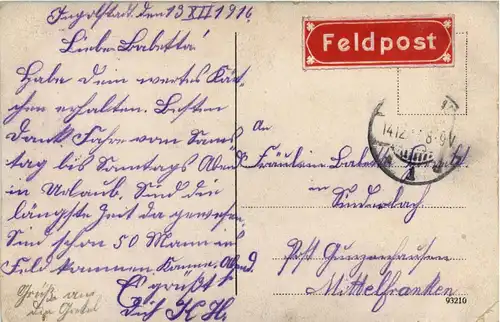 Ingolstadt, den 13 XII 1916
Liebe Babetta!
Habe Dein wertes Kärt-
chen erhalten. Besten
Dank. Fahre vom Sams
tag bis Sonntags Abend
in Urlaub. Sind die
längste Zeit da gewesen.
Sind schon 50 Mann ins
Feld kommen. Komme Abend.
Es grüßt
Dich K H.
Grüße an
die Gretel
Feldpost
14 12
8-9 V
An
Fräulein Babetta H
in
Sinderbach.
Post Gunzenhausen
Mittelfranken
93210